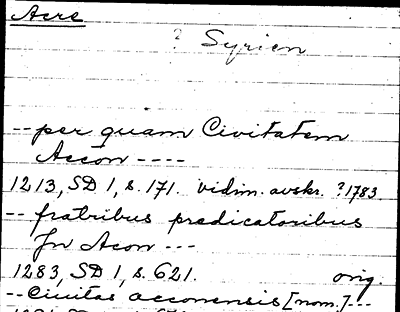 Acre
? Syrien
-- per quam Civitatem
Accon ----
1213, SD 1, s. 171. vidim. avskr. ? 1783.
-- fratribus predicatoribus
Jn Acon ---
1283, SD 1, s. 621. orig.
-- Civitas acconensis [nom.] ---